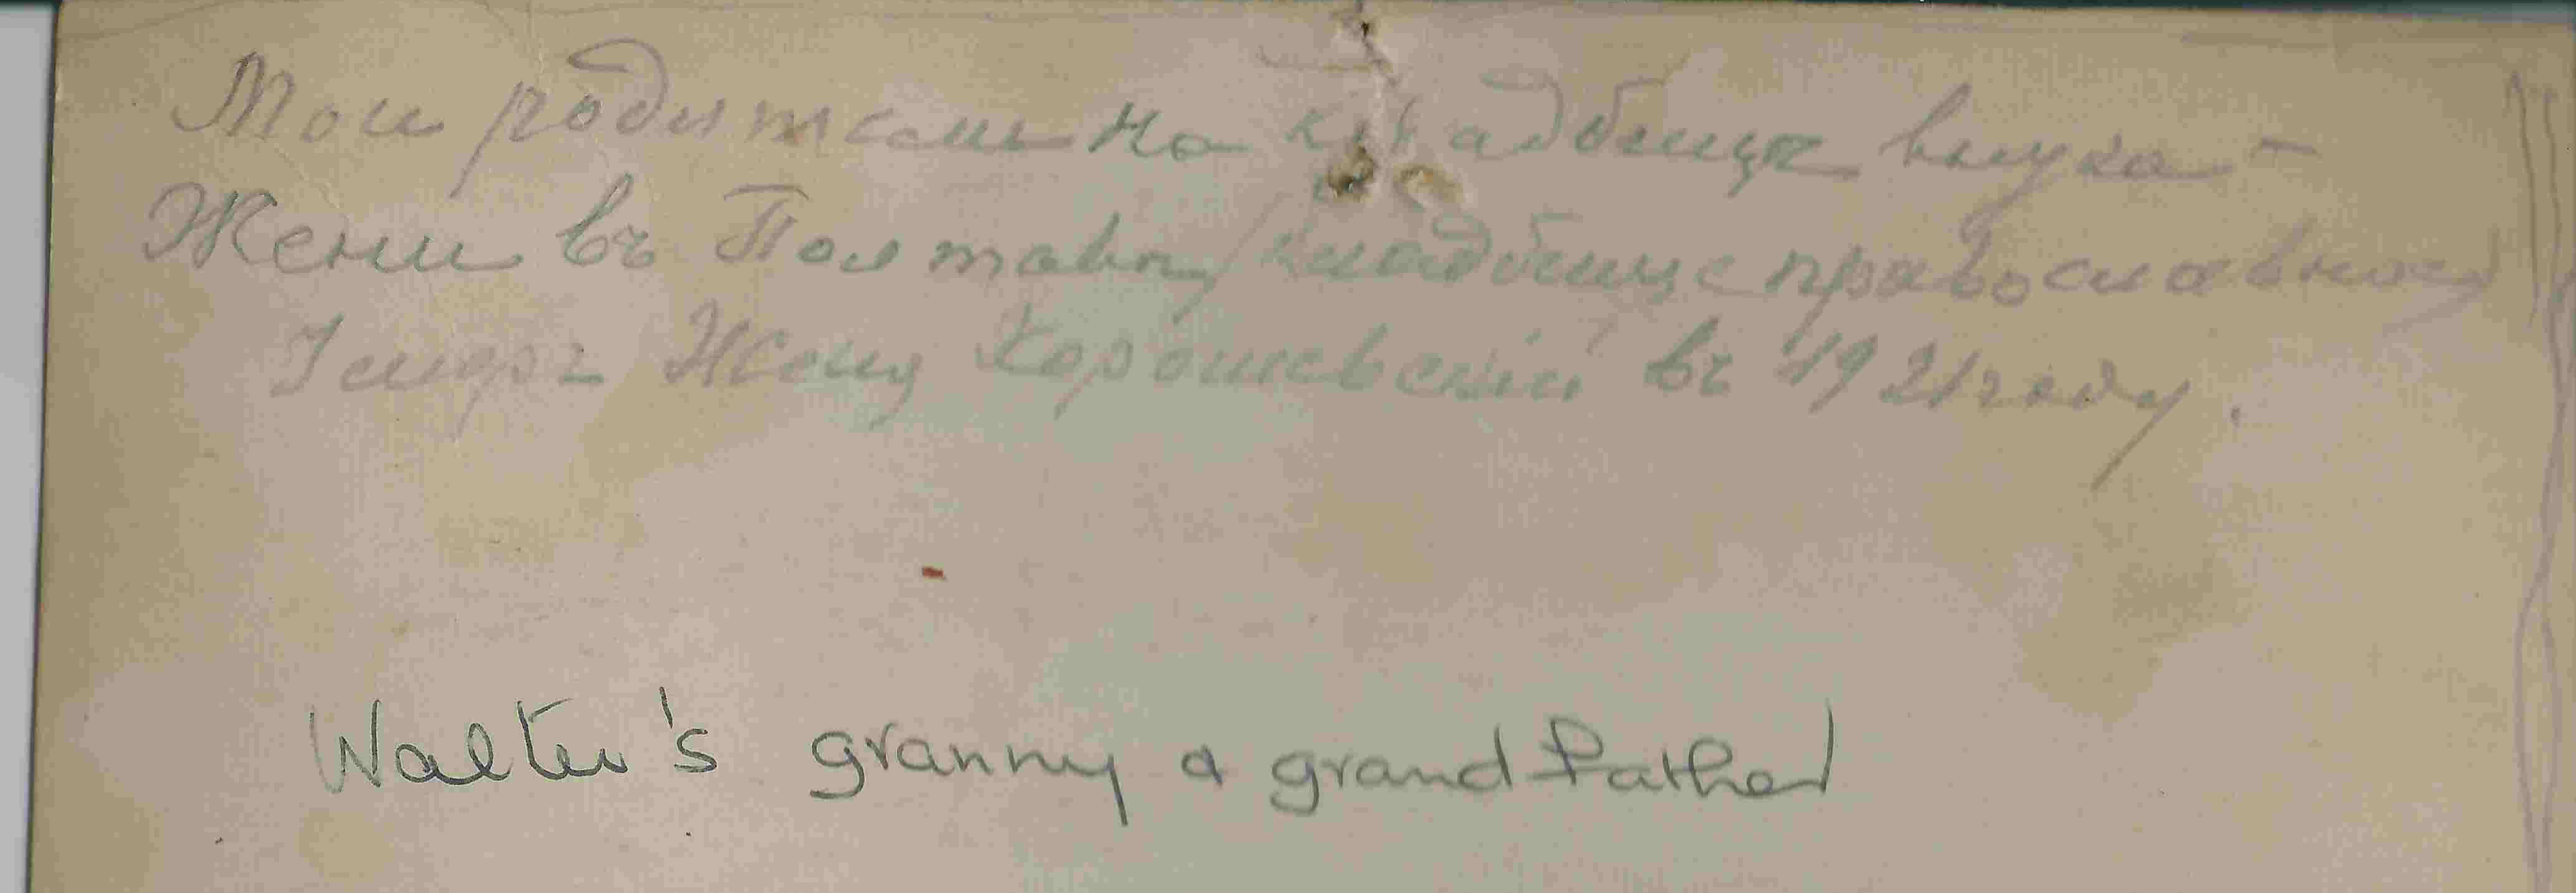 Мои родители на кладбищѣ внука –
Жени въ Полтавѣ / кладбище православное /
Умеръ Женя Хорошевскій въ 1921 году.
Walter's granny & grandfather